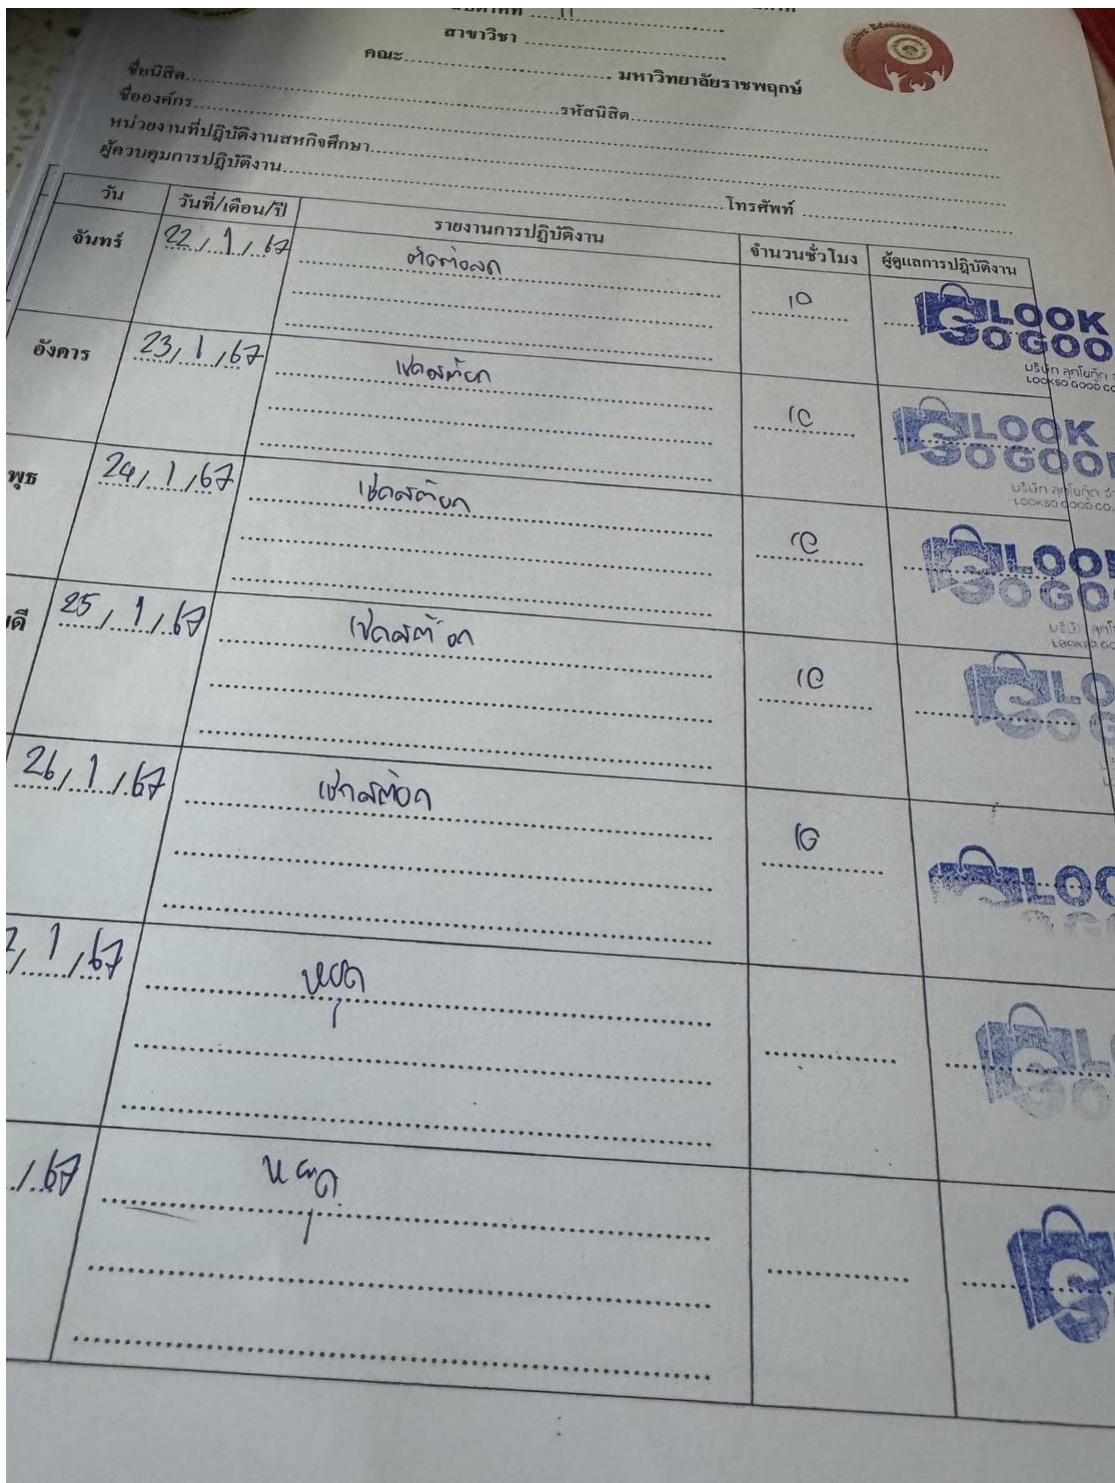 11
สาขาวิชา
คณะ มหาวิทยาลัยราชพฤกษ์
ชื่อนิสิต รหัสนิสิต
ชื่อองค์กร
หน่วยงานที่ปฏิบัติงานสหกิจศึกษา
ผู้ควบคุมการปฏิบัติงาน โทรศัพท์
วัน วันที่/เดือน/ปี รายงานการปฏิบัติงาน จำนวนชั่วโมง ผู้ดูแลการปฏิบัติงาน
จันทร์ 22/1/67 10
LOOK
SO GOO
บริษัท ลุคโซกู๊ด
LOOKSO GOOD CO
อังคาร 23/1/67 เชคสต๊อก 10
LOOK
SO GOO
บริษัท ลุคโซกู๊ด
LOOKSO GOOD CO.
พุธ 24/1/67 เช็คสต๊อก 10
LOO
SO GO
บริษัท
LOOKSO GO
ดี 25/1/67 เช็คสต๊อก 10
LO
SO G
26/1/67 เช็กสต๊อก 10
LOO
/1/67 หยุด
/67 หยุด